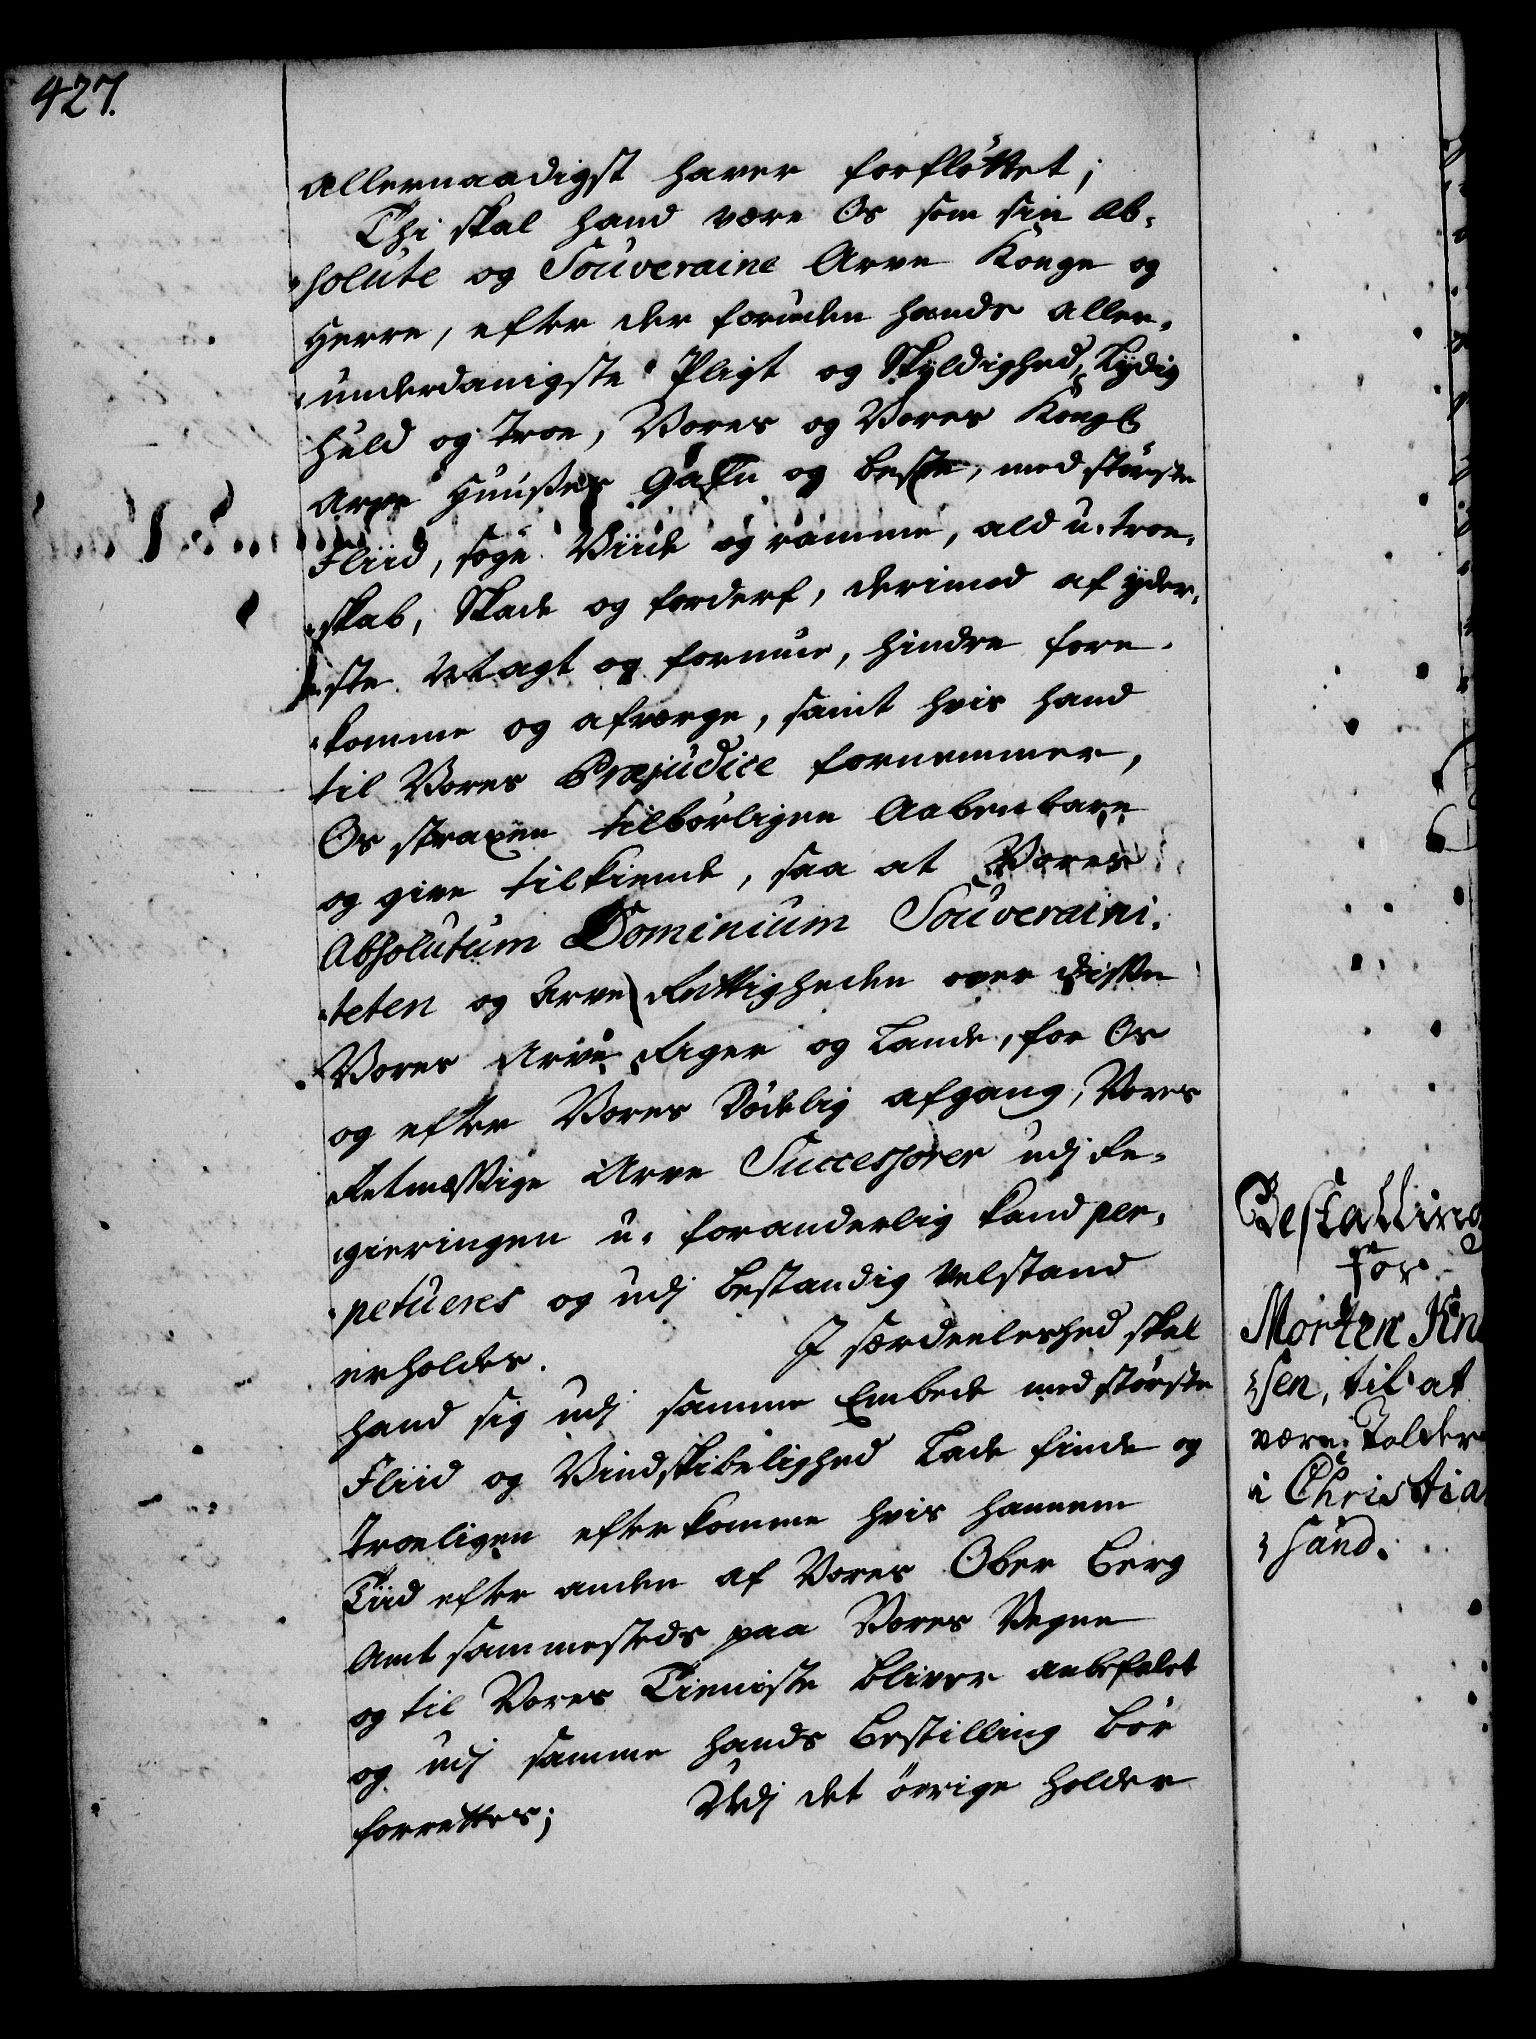 427.
allernaadigst haver forflöttet;
Thi skal hand være Os som sin Ab-
solute og Souveraine Arve Konge og
Herre, efter der foruden hands aller-
underdanigste Pligt og Skyldighed, Lydig
Huld og Troe, Vores og Vores Kongl
Arve Huuses Gafn og beste, med störste
Fliid, söge Viide og ramme, ald u-troe-
skab, Skade og forderf, derimod af yder-
ste Magt og formue, hindre fore-
komme og afværge, samt hvis hand
til Vores Præjudice fornemmer,
Os straxen tilbörligen Aabenbare
og give tilkiende, saa at Vores
Absolutum Dominium Souveraini-
teten og Arve Rettigheden over disse
Vores Arve Riger og Lande, for Os
og efter Vores Dödelig afgang, Vores
Retmæssige Arve Successorer udj Re-
gieringen u-foranderlig kand per-
petueres og udj bestandig Velstand
erholdes. I særdeeleshed skal
hand sig udj samme Embede med störste
Fliid og Vindskibelighed Lade finde og
Troeligen efterkomme hvis hannem
Tiid efter anden af Vores Ober Berg
Amt sammesteds paa Vores Vegne
og til Vores Tieniste bliver anbefalet
og udj samme hands Bestilling bör
forrettes; Udj det övrige holder
Bestalling
for
Morten Kn
sen, til at
være Tolder
i Christia
sand.